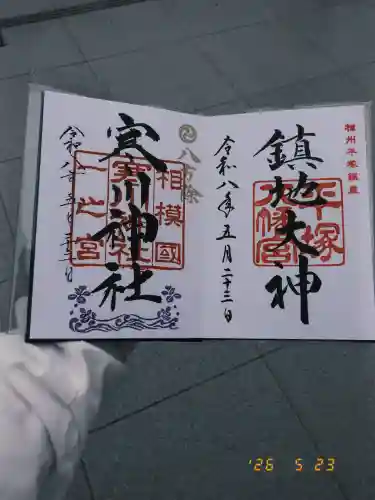 鎮地大神
平塚
八幡宮
令和八年五月二十三日
八方除
寒川神社
相模國
寒川
神社
一之宮
令和八年五月二十三日
'26 5 23